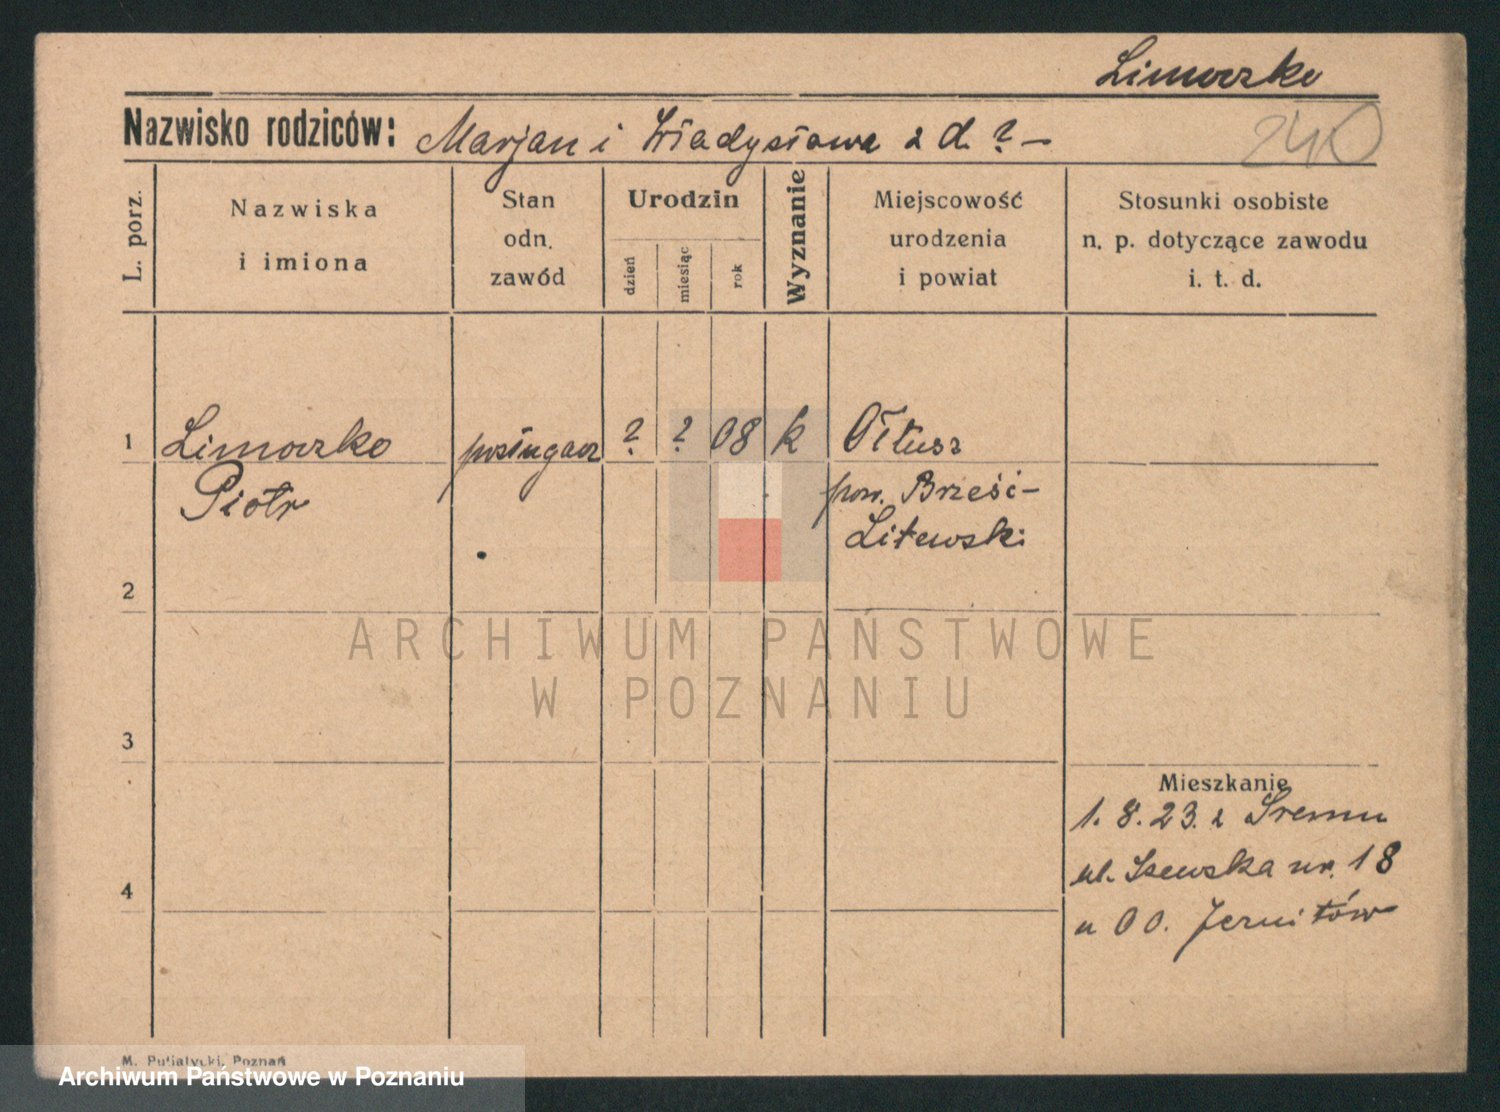 Limoszko
Nazwisko rodziców: Marjan i Władysława z d. ? –
240
L. porz.
Nazwiska
i imiona
Stan
odn.
zawód
Urodzin
dzień
miesiąc
rok
Wyznanie
Miejscowość
urodzenia
i powiat
Stosunki osobiste
n. p. dotyczące zawodu
i. t. d.
1 Limoszko posługacz ? ? 08 k Ołtusz
Piotr pow. Brześć-
Litewski
2
ARCHIWUM PAŃSTWOWE
W POZNANIU
3
Mieszkanie
1. 8. 23. z Śremu
ul. Szewska nr. 18
4
u OO. Jezuitów
M. Putiatycki, Poznań
Archiwum Państwowe w Poznaniu